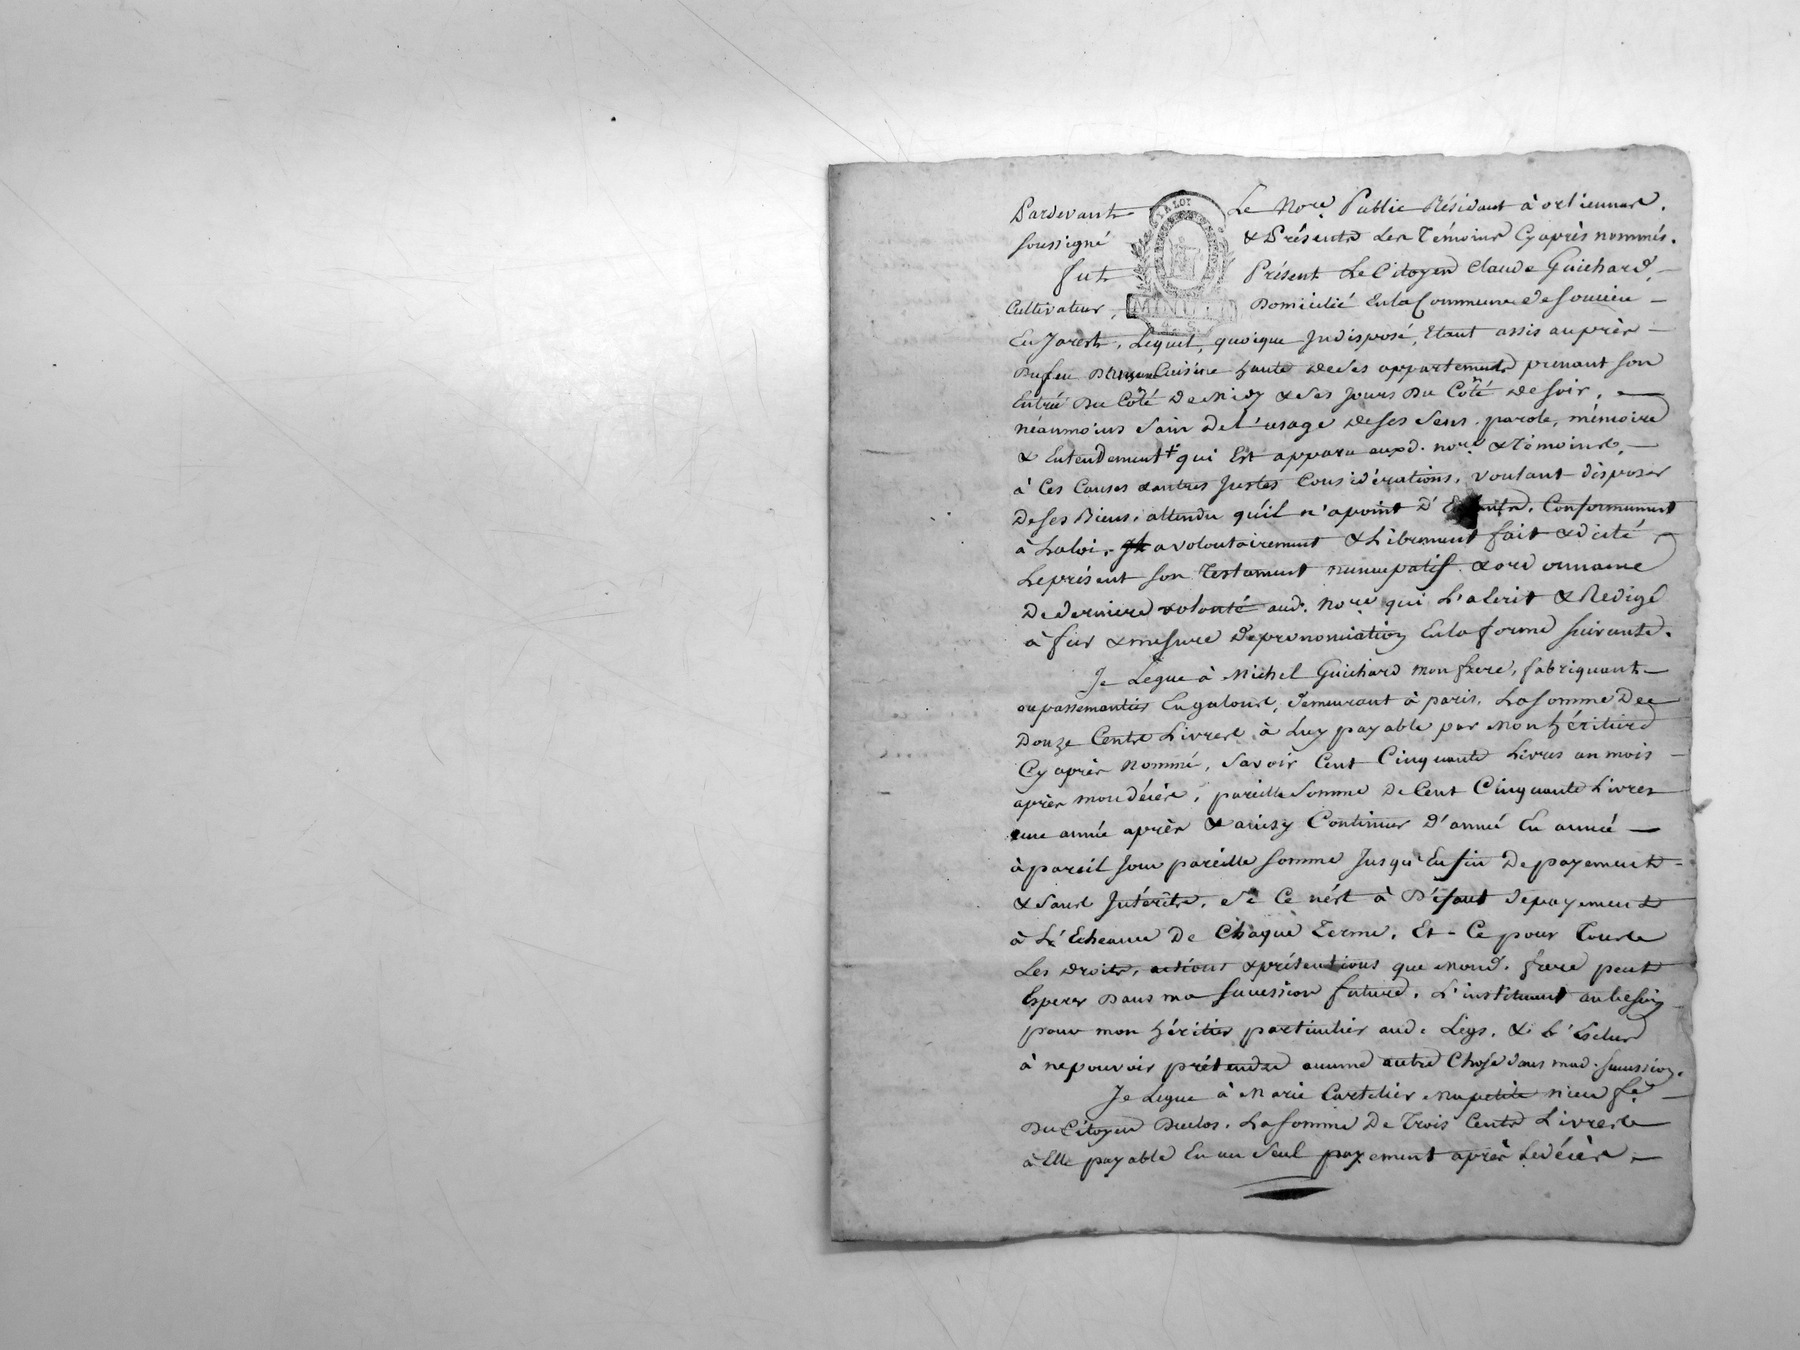 Pardevant Le Nore. Public Résidant à orlienas.
soussigné & Présents Les Témoins Cyaprès nommés.
LA LOI
fut Présent Le Citoyen Claude Guichard,
Cultivateur, Domicilié En la Commune de soucieu
En Jarest, Lequel, quoique Indisposé, Etant assis auprès
Du feu Cuisine haute De ses appartements prenant son
Entrée Du Côté De Midy & ses Jours Du Côté De soir,
néanmoins sain De l'usage De ses sens, parole, mémoire
& Entendement qui Est apparu auxd. nore. & Témoins,
à Ces Causes & autres Justes Considérations, voulant disposer
De ses Biens, attendu qu'il n'a point D' Conformement
à La loi, a volontairement & Librement fait & dicté
Le présent son Testament nuncupatif & ordonnance
De derniere volonté aud. Nore. qui L'a Ecrit & Redigé
à fur & mesure De prononciation En la forme suivante.
Je Legue à Michel Guichard mon frere, fabriquant
ou passementier En galons, demeurant à paris, La somme De
Douze Cents Livres à Luy payable par Mon héritier
Cy après Nommé, savoir Cent Cinquante Livres un mois
après mon décès, pareille somme De Cent Cinquante Livres
une année après & ainsy Continuer D'année En année
à pareil Jour pareille somme Jusqu'En fin De payement
& sans Intérêts, si Ce nést à Défaut de payement
à L'Echeance De Chaque Terme, Et Ce pour Tous
Les droits, actions & prétentions que Mond. frere peut
Esperer Dans ma succession future, L'instituant au besoin
pour mon héritier particulier aud. Legs, & L'Exclus
à ne pouvoir prétendre aucune autre Chose dans mad. succession.
Je Legue à Marie Cartelier Ma petite niece fe.
Du Citoyen Duclos, La somme De Trois Cents Livres
à Elle payable En un seul payement après Le décès